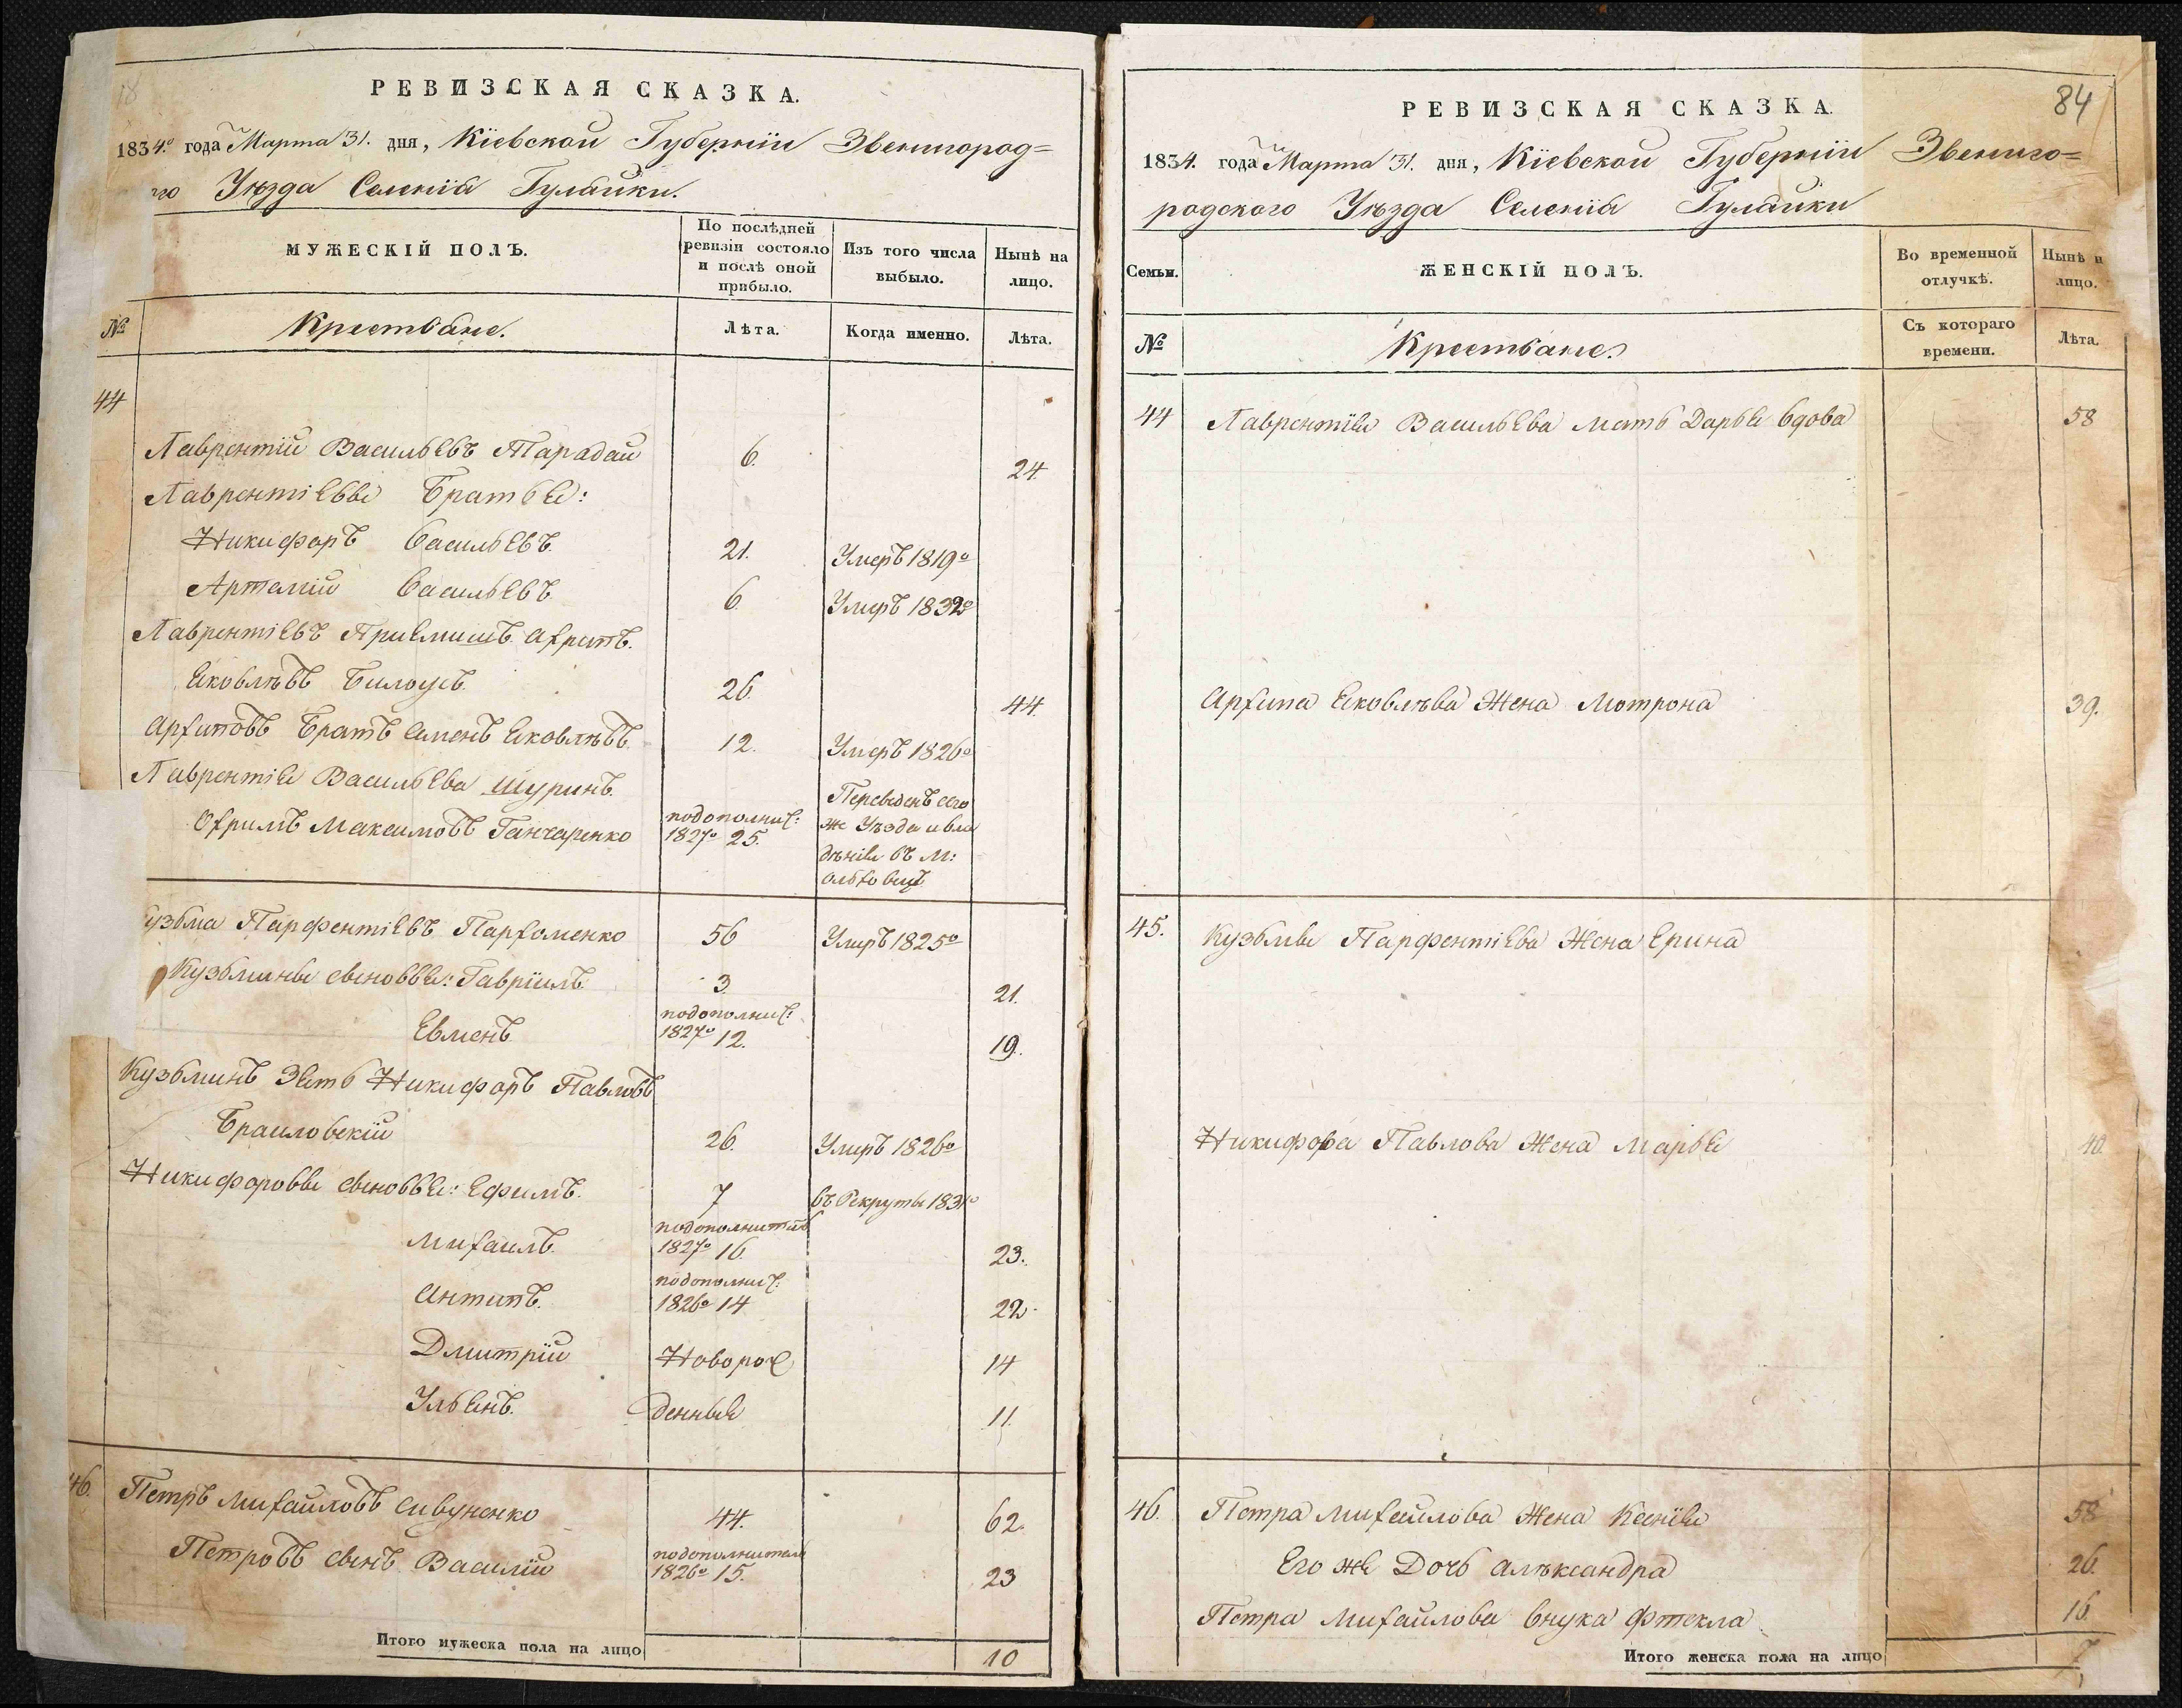 РЕВИЗСКАЯ СКАЗКА.
1834.º года Марта 31. дня, Кіевской Губерніи Звенигород=
го Уѣзда Селенія Гулайки.
МУЖЕСКІЙ ПОЛЪ.
По послѣдней ревизіи состояло и послѣ оной прибыло.
Изъ того числа выбыло.
Нынѣ на лицо.
№
Крестьяне.
Лѣта.
Когда именно.
Лѣта.
44
Лаврентій Васильевъ Тарадай 6. 24.
Лаврентіевы Братья:
Никифоръ Васильевъ 21. Умеръ 1819º
Артемій Васильевъ 6. Умеръ 1832º
Лаврентіевъ Приемышъ Архипъ
Яковлѣвъ Билоусъ 26. 44.
Архиповъ Братъ Семенъ Яковлѣвъ 12. Умеръ 1826º
Лаврентія Васильева Шуринъ
Охримъ Максимовъ Ганчаренко подополнит: 1827º 25. Переведенъ сего
же Уѣзда и вла
дѣнія въ М:
Ольховец
узьма Парфентіевъ Пархоменко 56 Умеръ 1825º
Кузьмины сыновья: Гавріилъ 3. 21.
Евменъ подополнит: 1827º 12. 19.
Кузьминъ Зять Никифоръ Павловъ
Браиловскій 26. Умеръ 1826º
Никифоровы сыновья: Ефимъ 7 въ Рекруты 1831º
Михаилъ подополнител 1827º 16 23.
Антипъ подополнит: 1826º 14 22.
Дмитрій Новорож 14
Ульянъ денныя 11.
46. Петръ Михайловъ Сивуненко 44. 62.
Петровъ сынъ Василій подополнител 1826º 15. 23
Итого мужеска пола на лицо 10
84
РЕВИЗСКАЯ СКАЗКА.
1834. года Марта 31. дня, Кіевской Губерніи Звениго=
родского Уѣзда Селенія Гулайки
Семьи.
ЖЕНСКІЙ ПОЛЪ.
Во временной отлучкѣ.
Нынѣ н лицо.
№
Крестьяне.
Съ котораго времени.
Лѣта.
44 Лаврентія Васильева Мать Дарья вдова 58
Архипа Яковлѣва Жена Мотрона 39.
45. Кузьмы Парфентіева Жена Ерина
Никифора Павлова Жена Марья 40.
46. Петра Михайлова Жена Ксенія 58
Его же Дочь Алѣксандра 26.
Петра Михайлова внука Фтекла 16
Итого женска пола на лицо 7